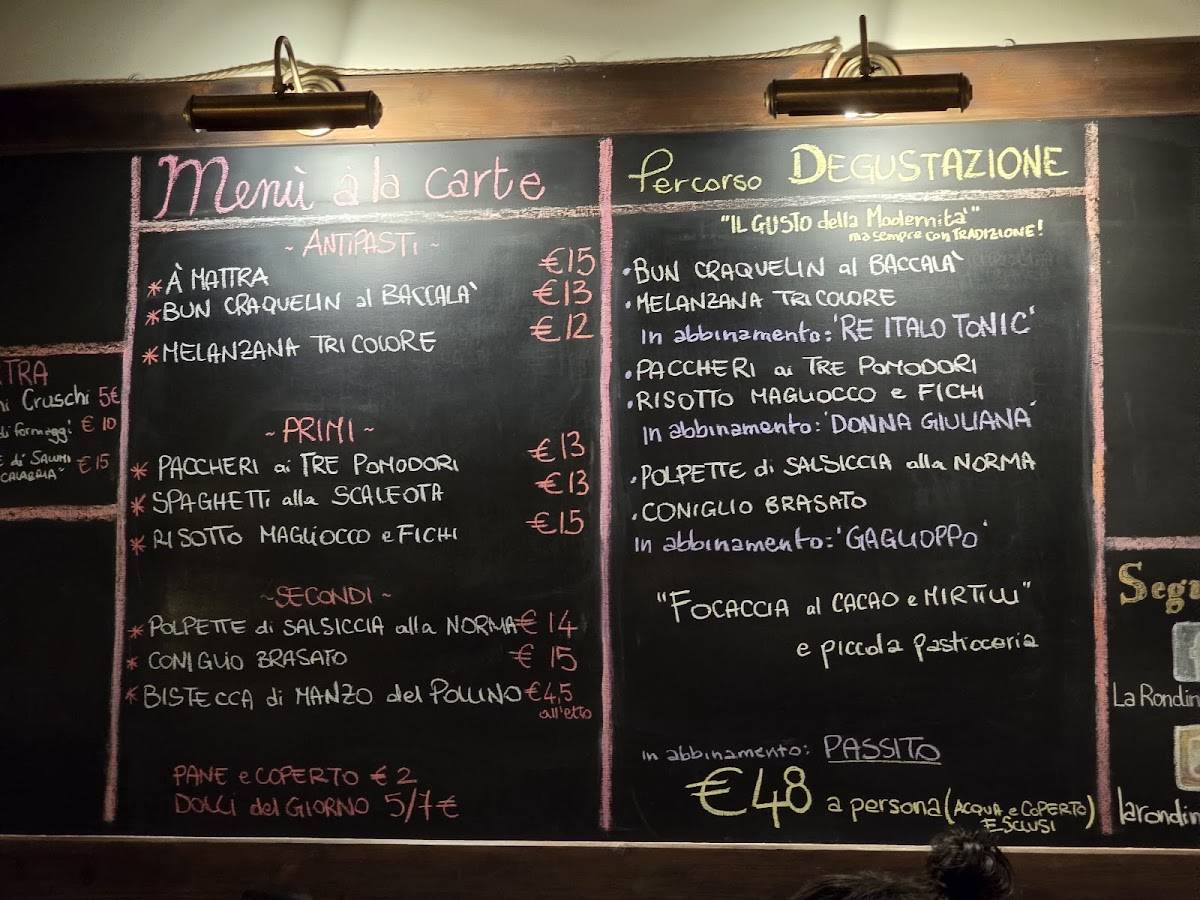 TRA
Cruschi 5€
di formaggi € 10
di SALUMI € 15
CALABRIA"
Menù à la carte
~ ANTIPASTI ~
* À MATTRA €15
* BUN CRAQUELIN al BACCALÀ €13
* MELANZANA TRICOLORE €12
~ PRIMI ~
* PACCHERI ai TRE POMODORI €13
* SPAGHETTI alla SCALEOTA €13
* RISOTTO MAGLIOCCO e FICHI €15
~ SECONDI ~
* POLPETTE di SALSICCIA alla NORMA € 14
* CONIGLIO BRASATO € 15
* BISTECCA di MANZO del POLLINO €4,5
all'etto
PANE e COPERTO € 2
DOLCI del GIORNO 5/7€
Percorso DEGUSTAZIONE
"IL GUSTO della Modernità"
ma sempre con TRADIZIONE!
• BUN CRAQUELIN al BACCALÀ
• MELANZANA TRICOLORE
In abbinamento: 'RE ITALO TONIC'
• PACCHERI ai TRE POMODORI
• RISOTTO MAGLIOCCO e FICHI
In abbinamento: 'DONNA GIULIANA'
• POLPETTE di SALSICCIA alla NORMA
• CONIGLIO BRASATO
In abbinamento: 'GAGLIOPPO'
"FOCACCIA al CACAO e MIRTILLI"
e piccola pasticceria
In abbinamento: PASSITO
€48 a persona (ACQUA e COPERTO)
ESCLUSI
Segu
La Rondin
larondin